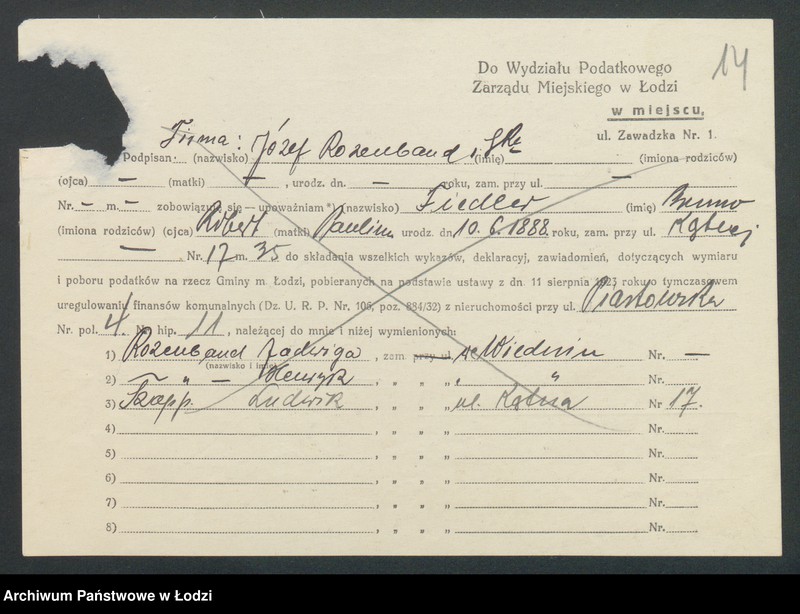 14
Do Wydziału Podatkowego
Zarządu Miejskiego w Łodzi
w miejscu,
ul. Zawadzka Nr. 1.
Firma: Józef Rozenband i Ska
Podpisan (nazwisko) (imię) (imiona rodziców)
(ojca) — (matki) — , urodz. dn. — roku, zam. przy ul. —
Nr. — m. — zobowiązuję się — upoważniam *) (nazwisko) Fiedler (imię) Bruno
(imiona rodziców) (ojca) Robert (matki) Paulina urodz. dn. 10.6.1888 roku, zam. przy ul. Kątnej
— Nr. 17 m. 35 do składania wszelkich wykazów, deklaracyj, zawiadomień, dotyczących wymiaru
i poboru podatków na rzecz Gminy m. Łodzi, pobieranych na podstawie ustawy z dn. 11 sierpnia 1923 roku o tymczasowem
uregulowaniu finansów komunalnych (Dz. U. R. P. Nr. 106, poz. 884/32) z nieruchomości przy ul. Piastowska
Nr. pol. 4 Nr. hip. 11 , należącej do mnie i niżej wymienionych:
1) Rozenband Jadwiga , zam. przy ul. we Wiedniu Nr. —
(nazwisko i imię)
2) — „ — Henryk , „ „ „ „ Nr.
3) Ludwik , „ „ ul. Kątna Nr 17.
4) , „ „ „ Nr.
5) , „ „ „ Nr.
6) , „ „ „ Nr.
7) , „ „ „ Nr.
8) , „ „ „ Nr.
Archiwum Państwowe w Łodzi